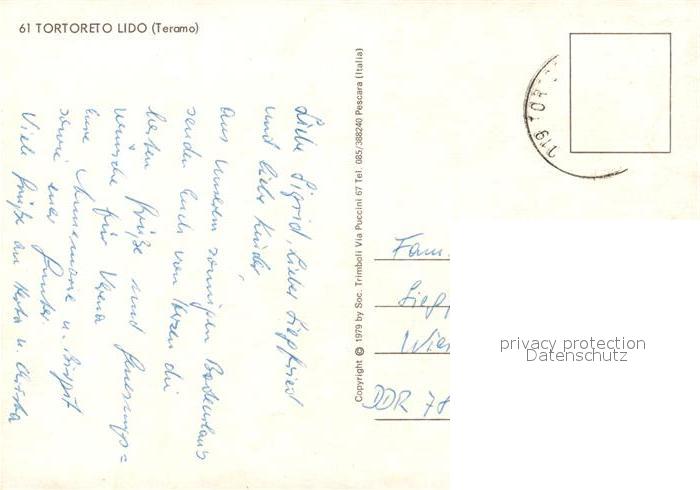 61 TORTORETO LIDO (Teramo)
Liebe Sigrid, lieber Siegfried
und liebe Kinder,
aus unserem sonnigen Badeurlaub
senden Euch von Herzen die
besten Grüße und Genesungs=
wünsche für Verena
Eure Annemarie u. 
sowie Günter.
Viele Grüße an u. Christa
Copyright © 1979 by Soc. Trimboli Via Puccini 67 Tel. 085/388240 Pescara (Italia)
019 TOR
Fam.
Sieg
Wie
DDR 78
privacy protection
Datenschutz